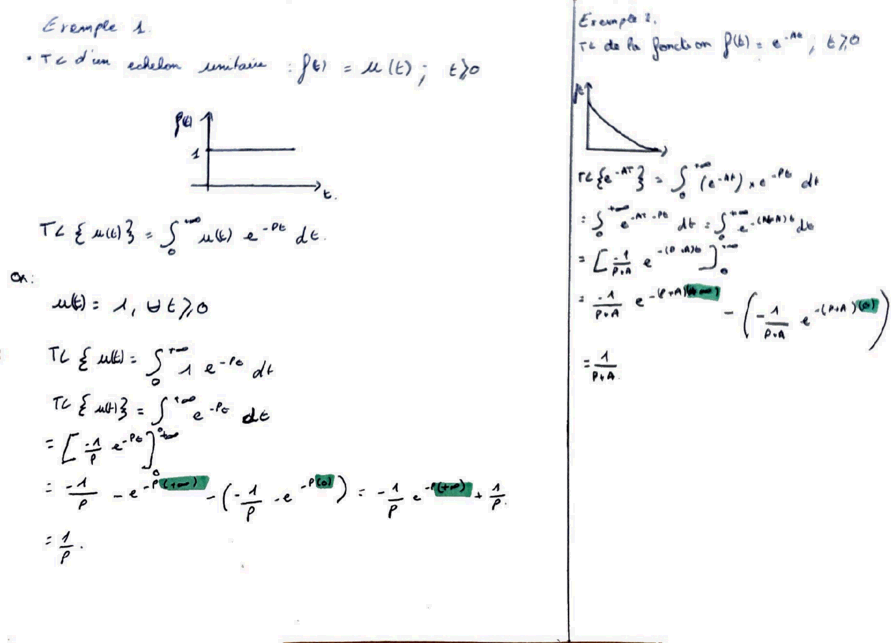 Exemple 1.
• TL d'un echelon unitaire : f(t) = u(t) ; t⩾0
f(t)
1
t.
TL { u(t)} = ∫₀^{+∞} u(t) e^{-Pt} dt.
Or:
u(t) = 1, ∀t⩾0
TL { u(t) = ∫₀^{+∞} 1 e^{-Pt} dt
TL { u(t)} = ∫₀^{+∞} e^{-Pt} dt
= [ -1/P e^{-Pt} ]₀^{+∞}
= -1/P - e^{-P(+∞)} - (- 1/P - e^{-P(0)} ) = - 1/P e^{-P(+∞)} + 1/P.
= 1/P.
Exemple 2.
TL de la fonction f(t) = e^{-At} ; t⩾0
ft
TL{e^{-AT}} = ∫₀^{+∞} (e^{-At}) × e^{-Pt} dt
= ∫₀^{+∞} e^{-AT-Pt} dt = ∫₀^{+∞} e^{-(P+A)t} dt
= [ -1/P+A e^{-(P+A)t} ]₀^{+∞}
= -1/P+A e^{-(P+A)(+∞)} - (- 1/P+A e^{-(P+A)(0)} )
= 1/P+A.